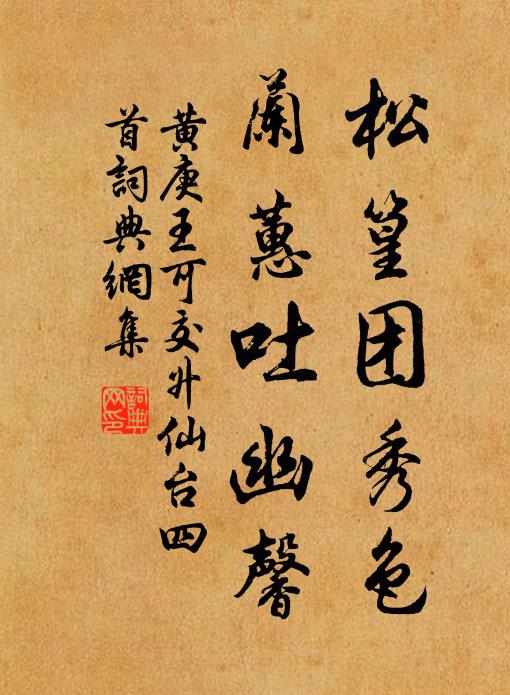 松篁团秀色
蘭蕙吐幽馨
黄庚王可交升仙台四
首詞典網集
詞典
网印